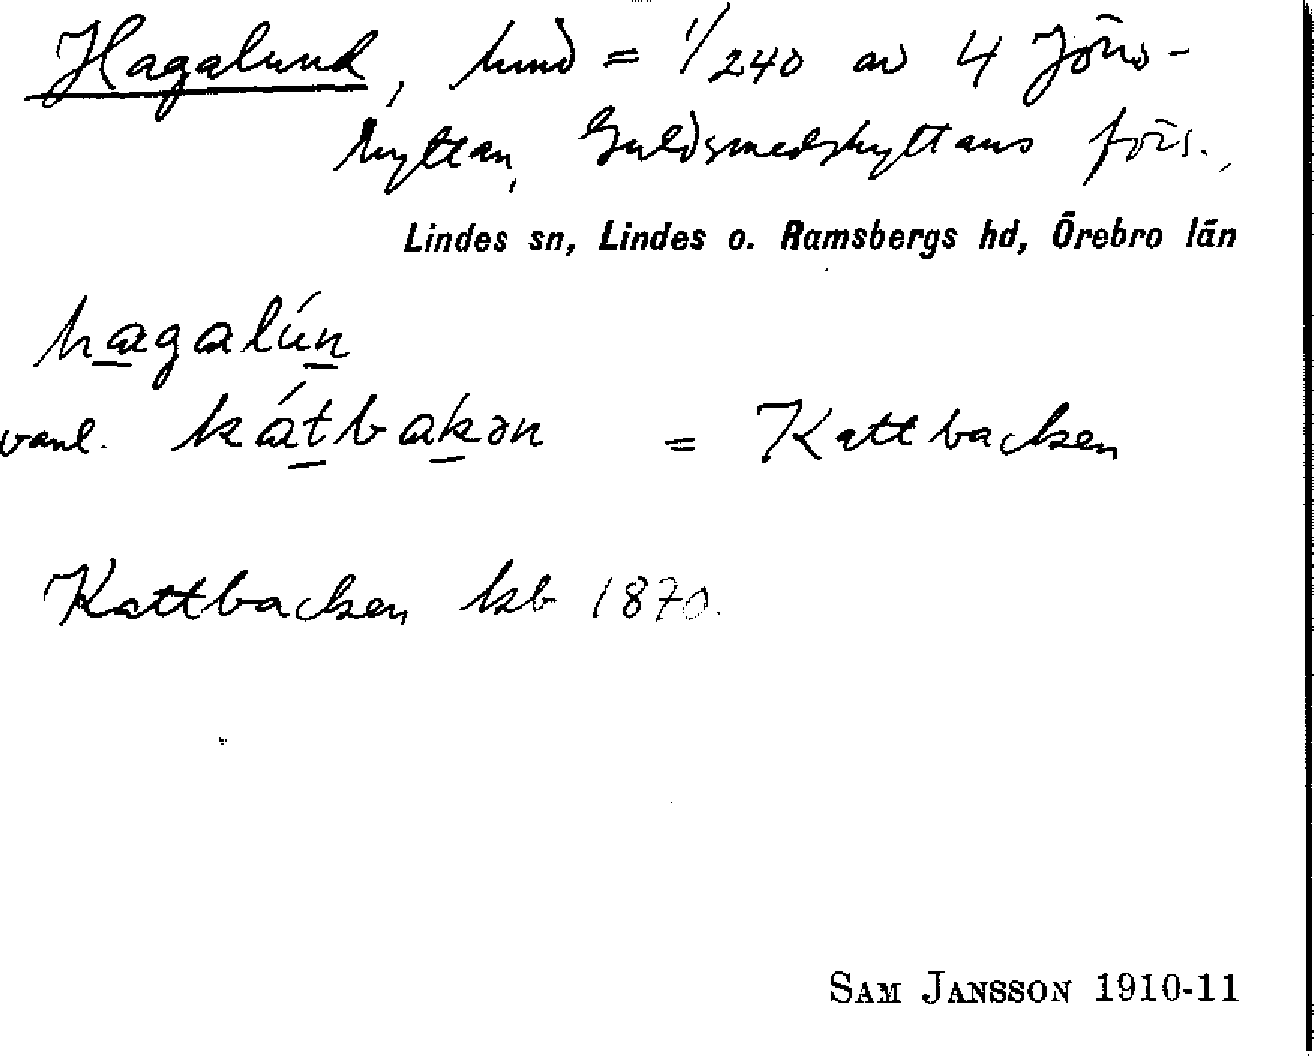 Hagalund, hmd = 1/240 av 4 Jöns-
hyttan, Guldsmedshyttans förs.,
Lindes sn, Lindes o. Ramsbergs hd, Örebro län
hagalún
vanl. kátbakən = Kattbacken
Kattbacken kb 1870.
SAM JANSSON 1910-11